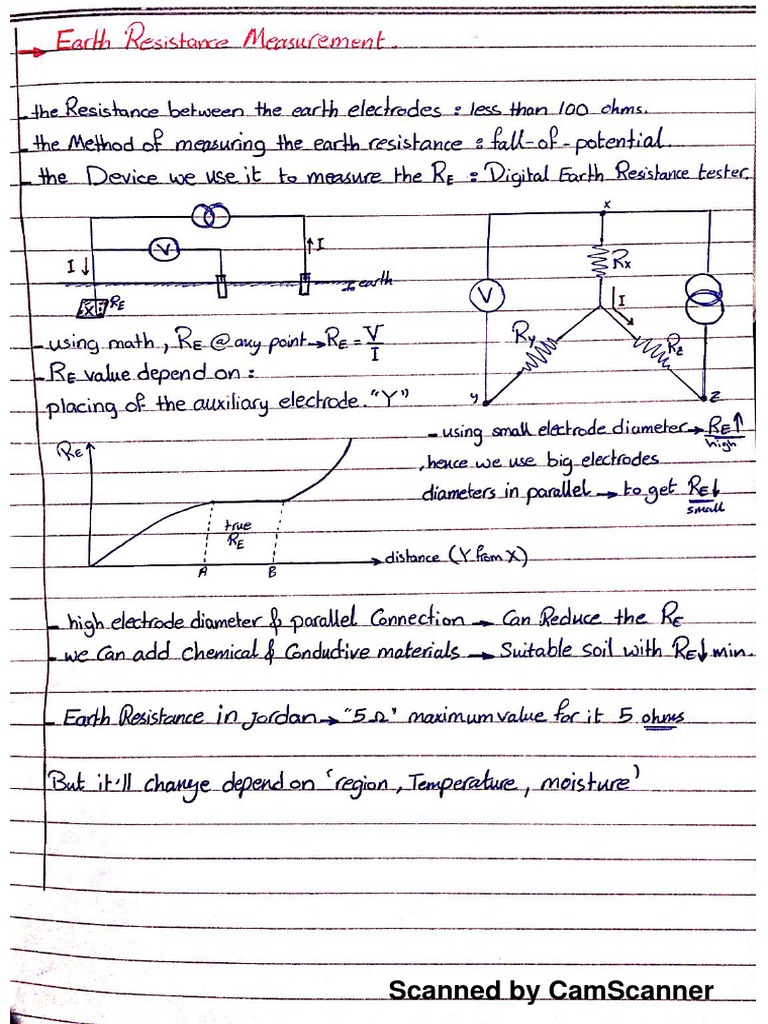 → Earth Resistance Measurement.
- the Resistance between the earth electrodes : less than 100 ohms.
- the Method of measuring the earth resistance : fall-of-potential.
- the Device we use it to measure the RE : Digital Earth Resistance tester.
V
I ↓
↑ I
earth
X
RE
x
Rx
I
V
Ry
Rz
y
z
- using math, RE @ any point → RE = V/I
- RE value depend on :
placing of the auxiliary electrode. "Y"
- using small electrode diameter → RE ↑
high
, hence we use big electrodes
diameters in parallel → to get RE ↓
small
RE
true
RE
A
B
distance (Y from X)
- high electrode diameter & parallel Connection → Can Reduce the RE
- we Can add chemical & Conductive materials → Suitable soil with RE ↓ min.
- Earth Resistance in Jordan → "5 Ω" maximum value for it 5 ohms
But it'll change depend on 'region, Temperature, moisture'
Scanned by CamScanner